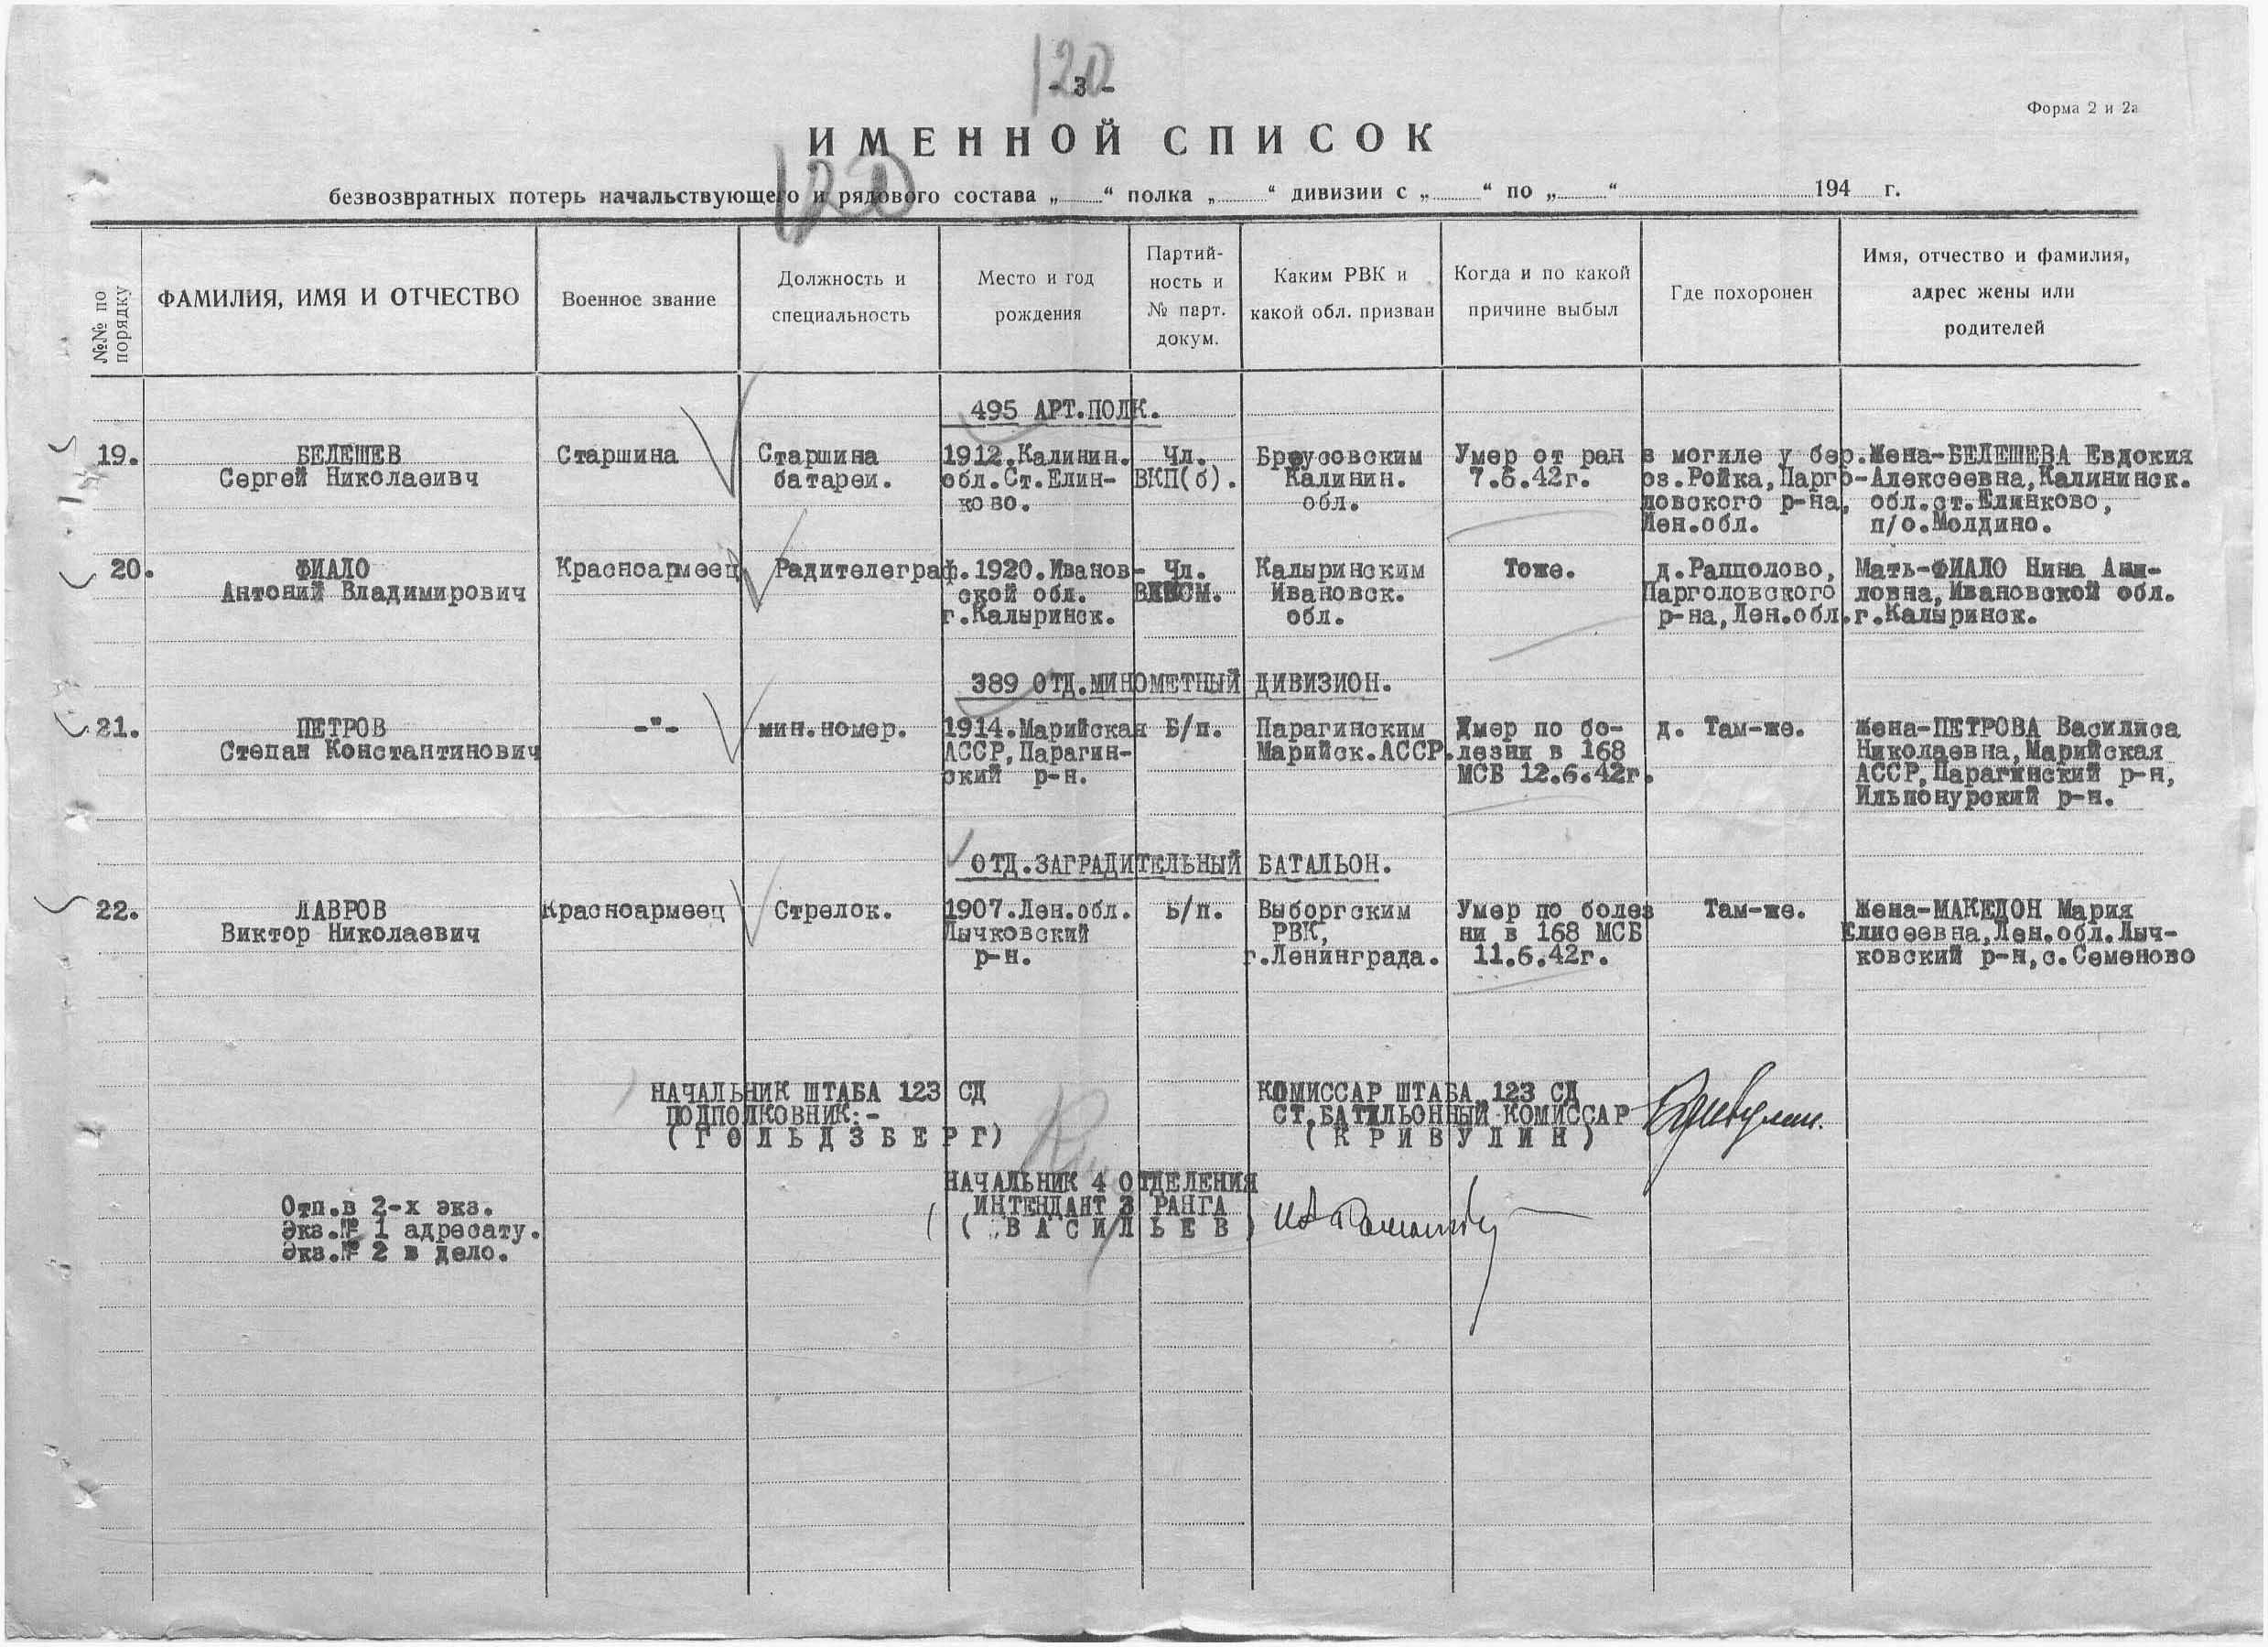 120
- 3 -
Форма 2 и 2а
ИМЕННОЙ СПИСОК
120
безвозвратных потерь начальствующего и рядового состава „ “ полка „ “ дивизии с „ “ по „ “ 194 г.
№№ по порядку
ФАМИЛИЯ, ИМЯ И ОТЧЕСТВО
Военное звание
Должность и
специальность
Место и год
рождения
Партий-
ность и
№ парт.
докум.
Каким РВК и
какой обл. призван
Когда и по какой
причине выбыл
Где похоронен
Имя, отчество и фамилия,
адрес жены или
родителей
495 АРТ.ПОЛК.
19.
БЕЛЕШЕВ
Сергей Николаеивч
Старшина
Старшина
батареи.
1912.Калинин.
обл.Ст.Елин-
ково.
Чл.
ВКП(б).
Бреусовским
Калинин.
обл.
Умер от ран
7.6.42г.
в могиле у бер.
оз.Ройка,Парго-
ловского р-на,
Лен.обл.
Жена-БЕЛЕШЕВА Евдокия
Алексеевна,Калининск.
обл.ст.Елинково,
п/о.Молдино.
20.
ФИАЛО
Антоний Владимирович
Красноармеец
Радителеграф.
1920.Иванов-
ской обл.
г.Калыринск.
Чл.
ВЛКСМ.
Калыринским
Ивановск.
обл.
Тоже.
д.Рапполово,
Парголовского
р-на,Лен.обл.
Мать-ФИАЛО Нина
ловна,Ивановской обл.
г.Калыринск.
389 ОТД.МИНОМЕТНЫЙ ДИВИЗИОН.
21.
ПЕТРОВ
Степан Константинович
-"-
мин.номер.
1914.Марийская
АССР,Парагин-
ский р-н.
Б/п.
Парагинским
Марийск.АССР.
Умер по бо-
лезни в 168
МСБ 12.6.42г.
д. Там-же.
Жена-ПЕТРОВА Василиса
Николаевна,Марийская
АССР,Парагинский р-н,
Ильпонурский р-н.
ОТД.ЗАГРАДИТЕЛЬНЫЙ БАТАЛЬОН.
22.
ЛАВРОВ
Виктор Николаевич
Красноармеец
Стрелок.
1907.Лен.обл.
Лычковский
р-н.
Б/п.
Выборгским
РВК,
г.Ленинграда.
Умер по болез
ни в 168 МСБ
11.6.42г.
Там-же.
Жена-МАКЕДОН Мария
Елисеевна,Лен.обл.Лыч-
ковский р-н,с.Семеново
НАЧАЛЬНИК ШТАБА 123 СД
ПОДПОЛКОВНИК:-
(ГОЛЬДЗБЕРГ)
КОМИССАР ШТАБА 123 СД
СТ.БАТАЛЬОННЫЙ КОМИССАР
(КРИВУЛИН)
НАЧАЛЬНИК 4 ОТДЕЛЕНИЯ
ИНТЕНДАНТ 3 РАНГА
(ВАСИЛЬЕВ)
Отп.в 2-х экз.
Экз.№ 1 адресату.
Экз.№ 2 в дело.